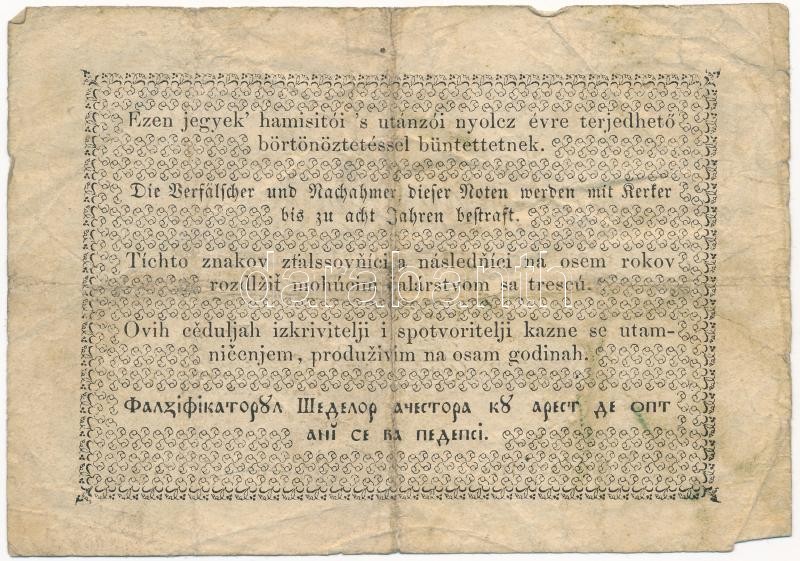 Ezen jegyek' hamisitói 's utánzói nyolcz évre terjedhető
börtönöztetéssel büntettetnek.
Die Verfälscher und Nachahmer dieser Noten werden mit Kerker
bis zu acht Jahren bestraft.
Tíchto znakov zfalssovňíci a následňíci na osem rokov
rozdlžiť mohúcim žalárstvom sa trescú.
Ovih cèduljah izkrivitelji i spotvoritelji kazne se utam-
ničenjem, produživim na osam godinah.
Фалꙃіфікаторꙋл Шеделор ачестора кꙋ арест де опт
анĭ се ва педепсі.
darabanth